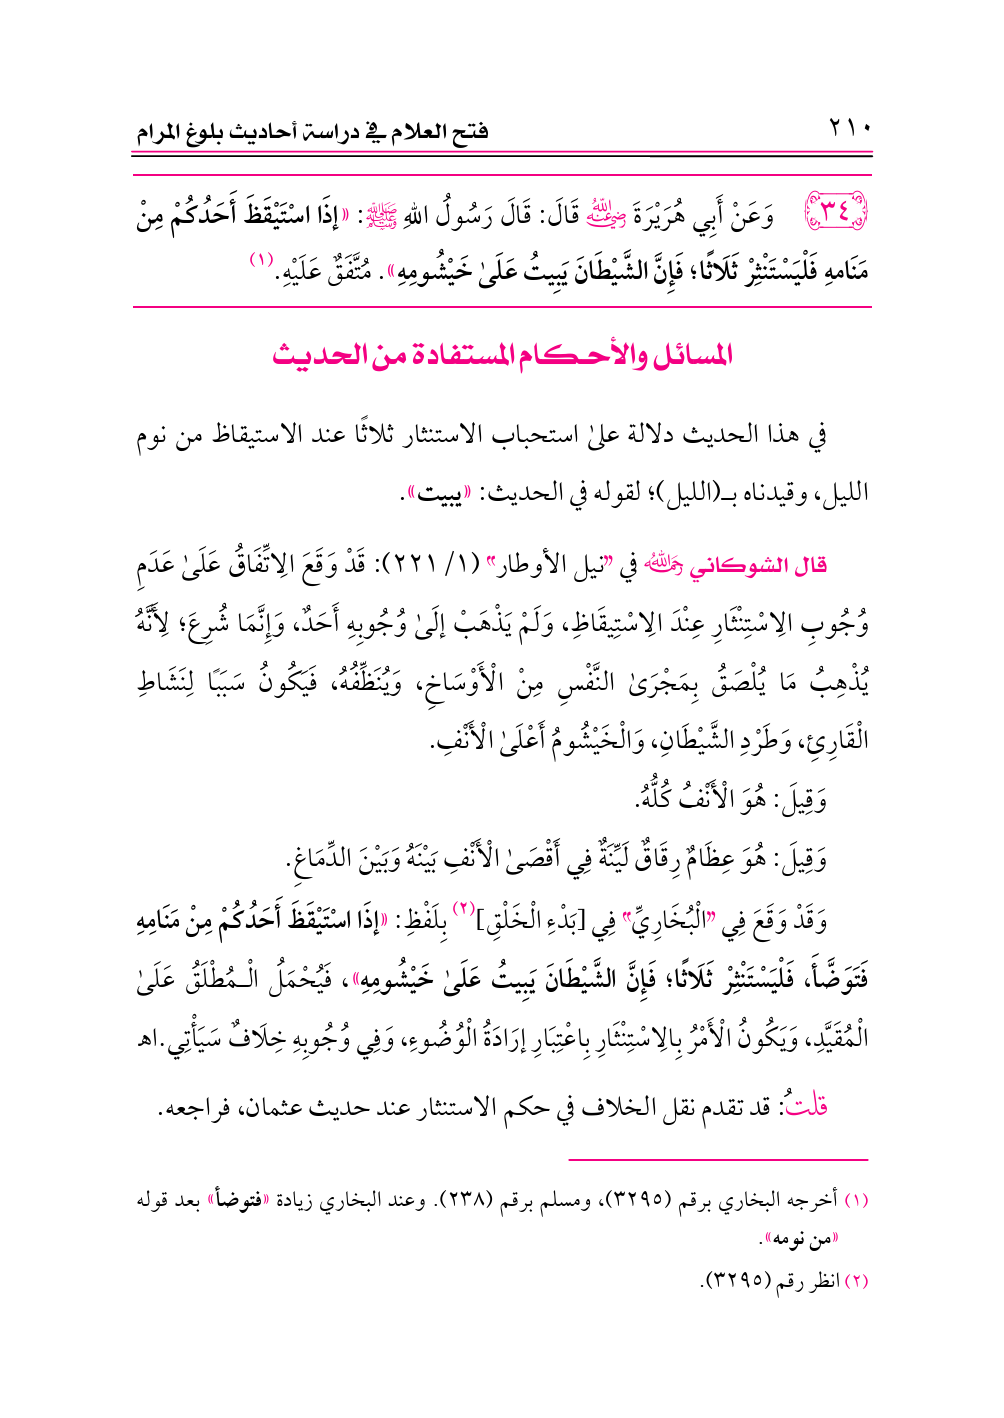 ٢١٠ فتح العلام في دراسة أحاديث بلوغ المرام
٣٤ وَعَنْ أَبِي هُرَيْرَةَ رضي الله عنه قَالَ: قَالَ رَسُولُ اللهِ ﷺ: «إذَا اسْتَيْقَظَ أَحَدُكُمْ مِنْ
مَنَامهِ فَلْيَسْتَنْثِرْ ثَلَاثًا؛ فَإِنَّ الشَّيْطَانَ يَبِيتُ عَلَىٰ خَيْشُومِهِ». مُتَّفَقٌ عَلَيْهِ.(١)
المسائل والأحكام المستفادة من الحديث
في هذا الحديث دلالة علىٰ استحباب الاستنثار ثلاثًا عند الاستيقاظ من نوم
الليل، وقيدناه بـ(الليل)؛ لقوله في الحديث: «يبيت».
قال الشوكاني رحمه الله في "نيل الأوطار" (١/ ٢٢١): قَدْ وَقَعَ الِاتِّفَاقُ عَلَىٰ عَدَمِ
وُجُوبِ الِاسْتِنْثَارِ عِنْدَ الِاسْتِيقَاظِ، وَلَمْ يَذْهَبْ إلَىٰ وُجُوبِهِ أَحَدٌ، وَإِنَّمَا شُرِعَ؛ لِأَنَّهُ
يُذْهِبُ مَا يُلْصَقُ بِمَجْرَىٰ النَّفْسِ مِنْ الْأَوْسَاخِ، وَيُنَظِّفُهُ، فَيَكُونُ سَبَبًا لِنَشَاطِ
الْقَارِئِ، وَطَرْدِ الشَّيْطَانِ، وَالْخَيْشُومُ أَعْلَىٰ الْأَنْفِ.
وَقِيلَ: هُوَ الْأَنْفُ كُلُّهُ.
وَقِيلَ: هُوَ عِظَامٌ رِقَاقٌ لَيِّنَةٌ فِي أَقْصَىٰ الْأَنْفِ بَيْنَهُ وَبَيْنَ الدِّمَاغِ.
وَقَدْ وَقَعَ فِي "الْبُخَارِيِّ" فِي [بَدْءِ الْخَلْقِ](٢) بِلَفْظِ: «إذَا اسْتَيْقَظَ أَحَدُكُمْ مِنْ مَنَامِهِ
فَتَوَضَّأَ، فَلْيَسْتَنْثِرْ ثَلَاثًا؛ فَإِنَّ الشَّيْطَانَ يَبِيتُ عَلَىٰ خَيْشُومِهِ»، فَيُحْمَلُ الْـمُطْلَقُ عَلَىٰ
الْمُقَيَّدِ، وَيَكُونُ الْأَمْرُ بِالِاسْتِنْثَارِ بِاعْتِبَارِ إرَادَةُ الْوُضُوءِ، وَفِي وُجُوبِهِ خِلَافٌ سَيَأْتِي.اهـ
قلتُ: قد تقدم نقل الخلاف في حكم الاستنثار عند حديث عثمان، فراجعه.
(١) أخرجه البخاري برقم (٣٢٩٥)، ومسلم برقم (٢٣٨). وعند البخاري زيادة «فتوضأ» بعد قوله
«من نومه».
(٢) انظر رقم (٣٢٩٥).